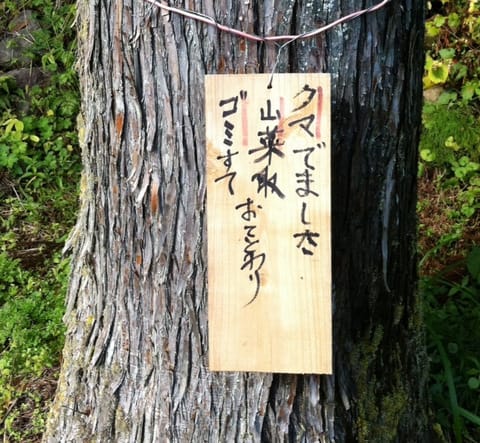 クマでました
山菜取おことわり
ゴミすて